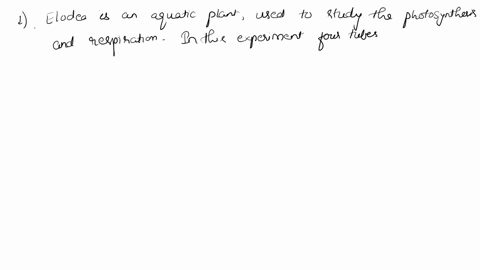 1) Elodea is an aquatic plant, used to study the photosynthesis
and respiration. In this experiment four tubes